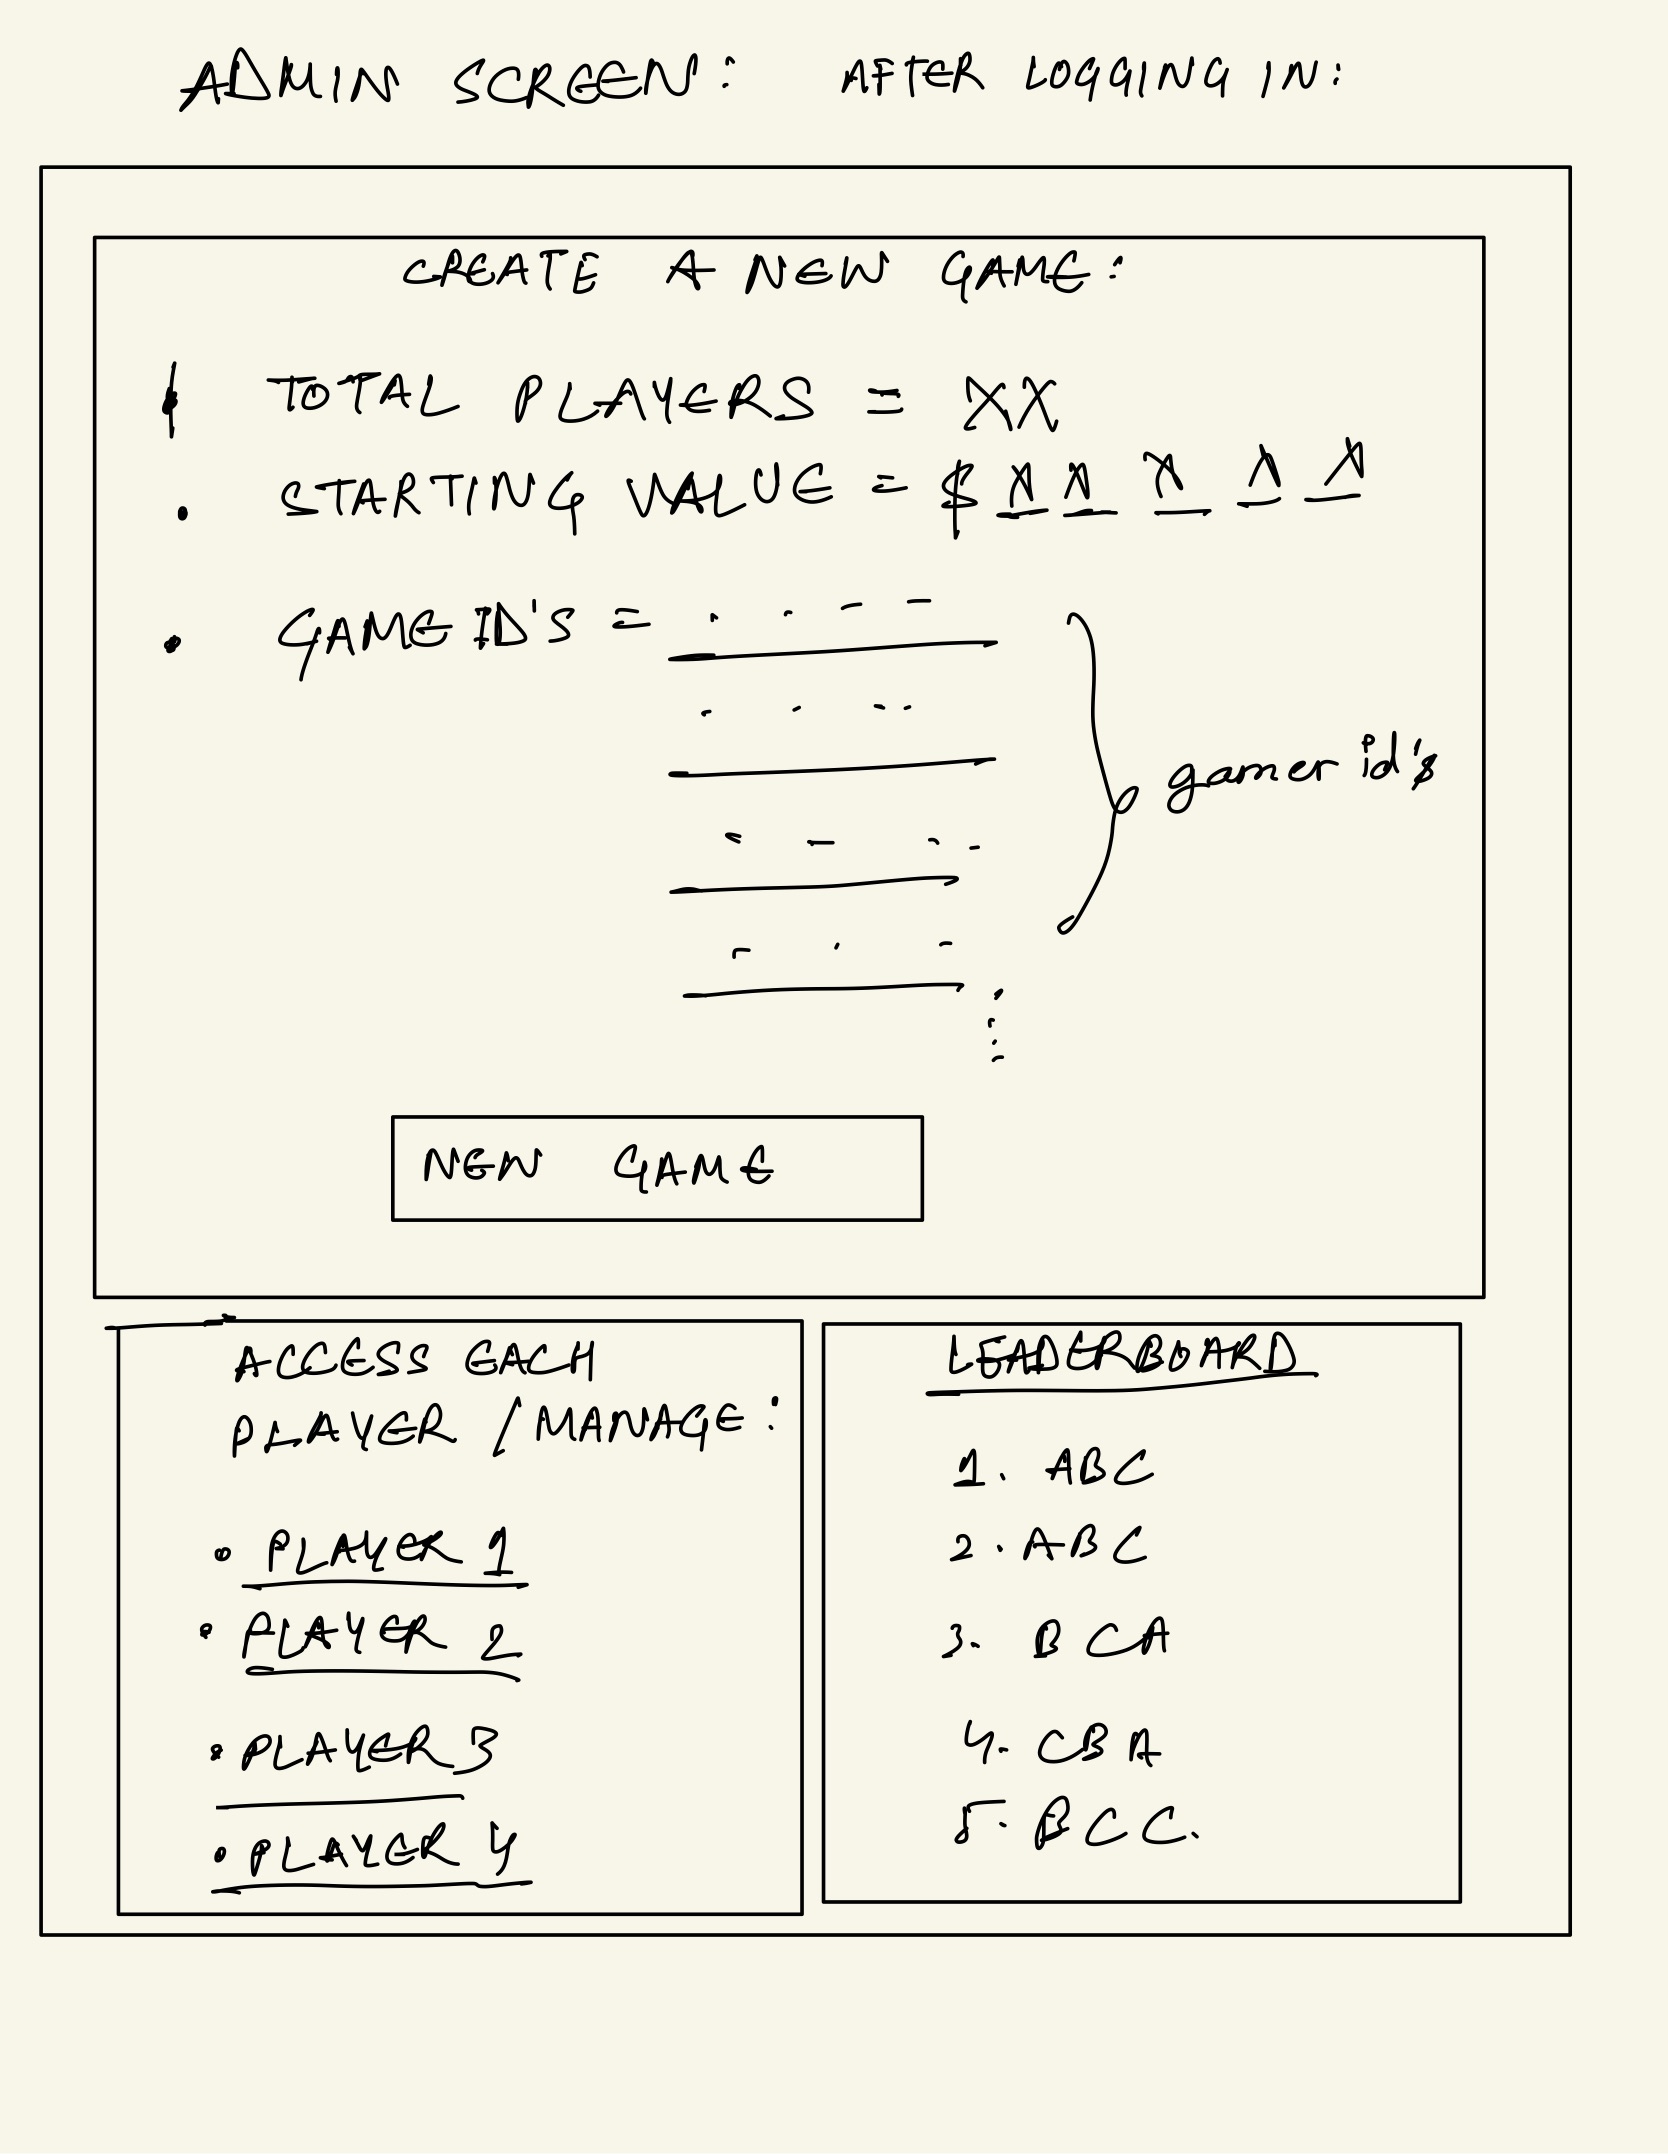 ADMIN SCREEN: AFTER LOGGING IN:
CREATE A NEW GAME:
TOTAL PLAYERS = XX
• STARTING VALUE = $ X X X X X
• GAME ID'S =
gamer id's
NEW GAME
ACCESS EACH
PLAYER / MANAGE:
• PLAYER 1
• PLAYER 2
• PLAYER 3
• PLAYER 4
LEADERBOARD
1. ABC
2. ABC
3. BCA
4. CBA
5. BCC.